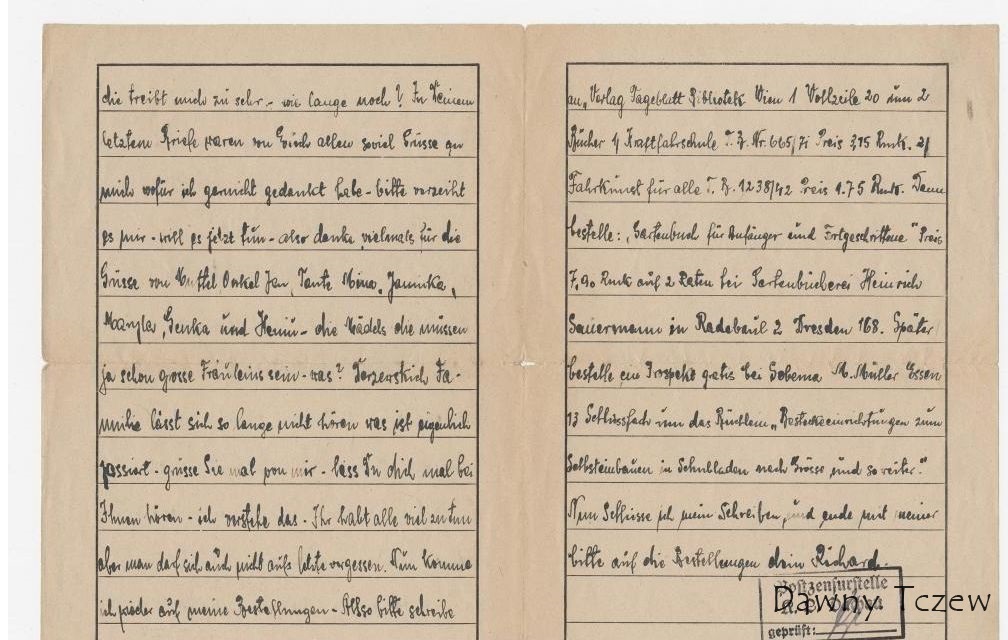 die treibt mich zu sehr - wie lange noch? In Deinem
letztem Briefe waren von Euch allen soviel Grüsse an
mich wofür ich garnicht gedankt habe - bitte verzeiht
es mir - will es jetzt tun - also danke vielmals für die
Grüsse von Muttel Onkel Jan, Tante Mina, Janinka,
Maryla, Genka und Heniu - die Mädels die müssen
ja schon grosse Fräuleins sein - was? Fa-
milie lässt sich so lange nicht hören was ist eigenlich
passiert - grüsse Sie mal von mir - lass Du dich mal bei
Ihnen hören - ich verstehe das - Ihr habt alle viel zu tun
aber man darf sich auch nicht aufs letzte vergessen. Nun komme
ich wieder auf meine Bestellungen - Allso bitte schreibe
an „Verlag Tageblatt Bibliotek Wien 1 Vollzeile 20 um 2
Bücher 1/ Kraftfahrschule T.B. Nr. 665/71 Preis 3,15 Rmk. 2/
Fahrkunst für alle T.B. 1238/42 Preis 1.75 Rmk. Dann
bestelle: „Gartenbuch für Anfänger und Fortgeschrittene" Preis
7,90 Rmk auf 2 Raten bei Gartenbücherei Heinrich
Sauermann in Radebeul 2 Dresden 168. Später
bestelle ein Prospekt gratis bei Gebema M. Müller Essen
13 Schlissfach um das Büchlein „Besteckeinrichtungen zum
Selbsteinbauen in Schubladen nach Grösse und so weiter."
Nun Schlisse ich mein Schreiben, und ende mit meiner
bitte auf die Bestellungen dein Richard.
Postzensurstelle
geprüft:
Dawny Tczew